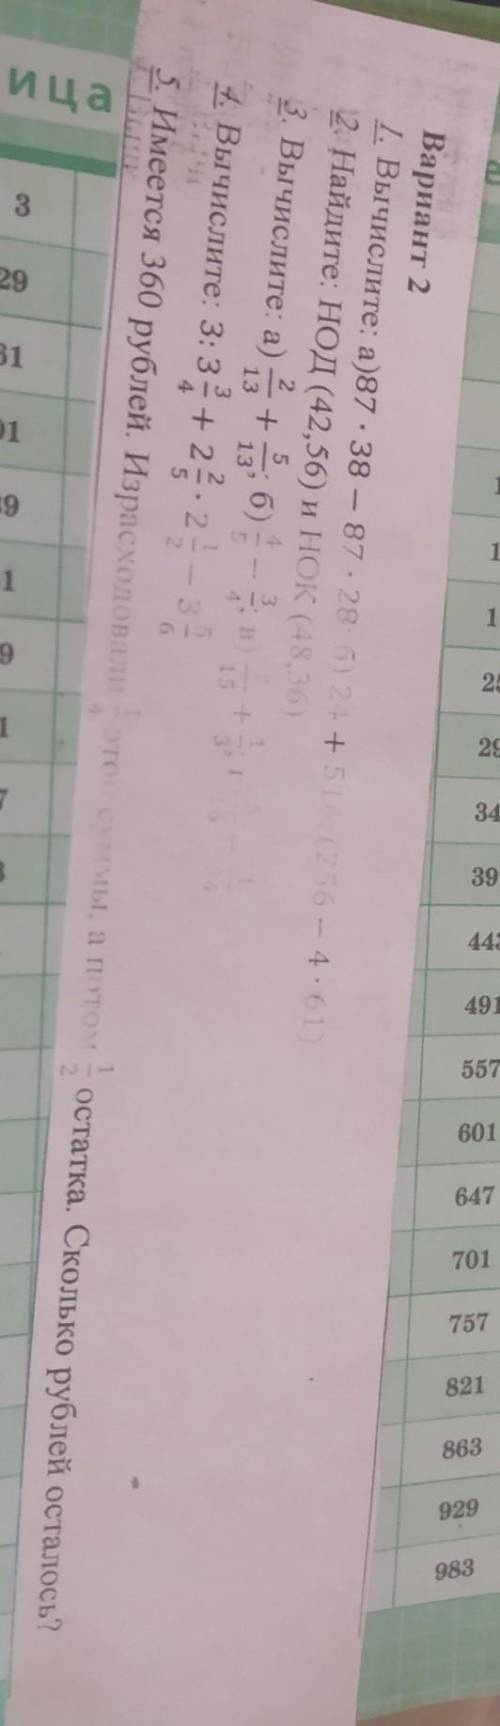 Вариант 2
1. Вычислите: а)87 · 38 − 87 · 28 б) 24 + 516 (256 − 4 · 61)
2. Найдите: НОД (42,56) и НОК (48,36)
3. Вычислите: а) 2/13 + 5/13; б) 4/5 − 3/4; в) 2/15 + 1/3; − 1/4
4. Вычислите: 3: 3 3/4 + 2 2/5 · 2 1/2 − 3 5/6
5. Имеется 360 рублей. Израсходовали 1/4 этой суммы, а потом 1/2 остатка. Сколько рублей осталось?
ица
3
29
1
1
1
25
29
34
39
443
491
557
601
647
701
757
821
863
929
983